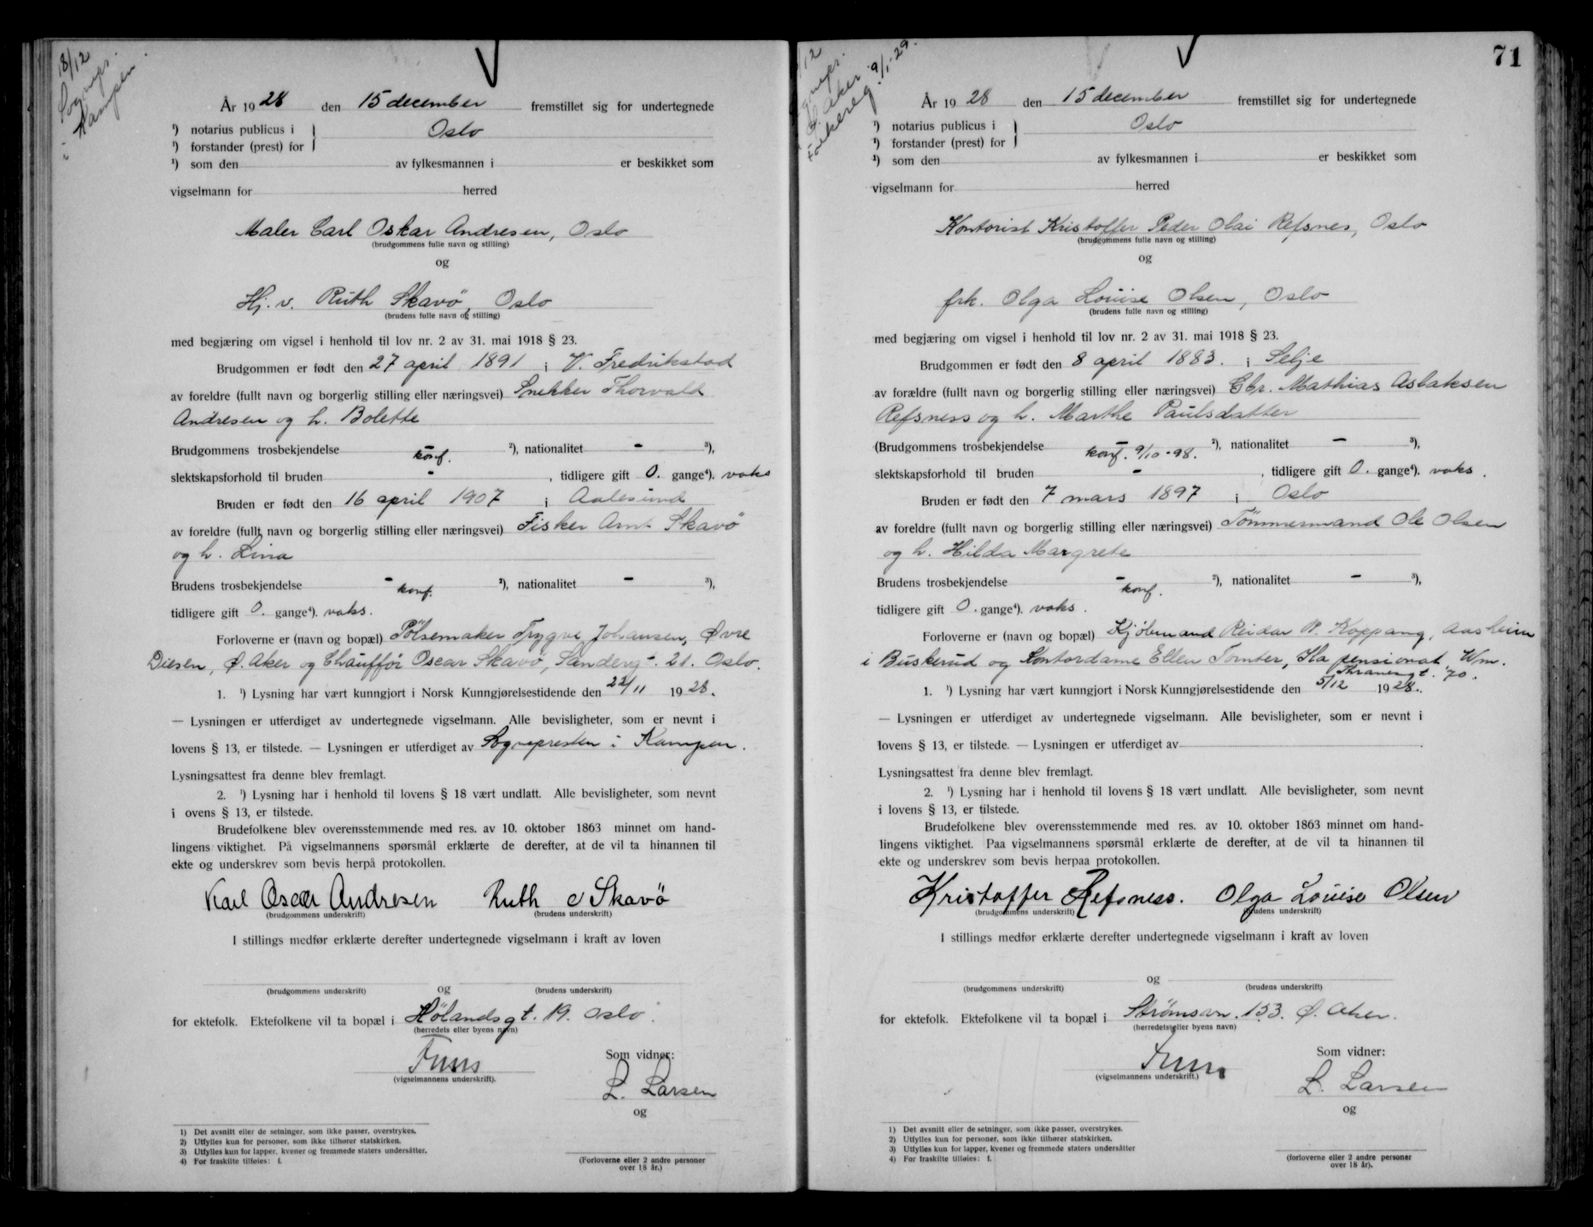 18/12
Sogneps.
i Kampen.
År 1928 den 15 december fremstillet sig for undertegnede
¹) notarius publicus i
¹) forstander (prest) for
Oslo
¹) som den av fylkesmannen i er beskikket som
vigselmann for herred
Maler Carl Oskar Andresen, Oslo
(brudgommens fulle navn og stilling)
og
Hj. v. Ruth Skavö, Oslo
(brudens fulle navn og stilling)
med begjæring om vigsel i henhold til lov nr. 2 av 31. mai 1918 § 23.
Brudgommen er født den 27 april 1891 i V. Fredrikstad
av foreldre (fullt navn og borgerlig stilling eller næringsvei) Snekker Thorvald
Andresen og h. Bolette
Brudgommens trosbekjendelse - konf. ²), nationalitet - ³),
slektskapsforhold til bruden - , tidligere gift 0. gange⁴). voks
Bruden er født den 16 april 1907 i Aalesund
av foreldre (fullt navn og borgerlig stilling eller næringsvei) Fisker Arnt Skavö
og h. Lina
Brudens trosbekjendelse - konf. ²), nationalitet - ³),
tidligere gift 0. gange⁴). voks.
Forloverne er (navn og bopæl) Pölsemaker Trygve Johansen, Øvre
Disen, Ø. Aker og Chaufför Oscar Skavö, Sandergt. 21. Oslo.
1. ¹) Lysning har vært kunngjort i Norsk Kunngjørelsestidende den 22/11 1928.
— Lysningen er utferdiget av undertegnede vigselmann. Alle bevisligheter, som er nevnt i
lovens § 13, er tilstede. — Lysningen er utferdiget av Sognepresten i Kampen.
Lysningsattest fra denne blev fremlagt.
2. ¹) Lysning har i henhold til lovens § 18 vært undlatt. Alle bevisligheter, som nevnt
i ovens § 13, er tilstede.
Brudefolkene blev overensstemmende med res. av 10. oktober 1863 minnet om hand-
lingens viktighet. På vigselmannens spørsmål erklærte de derefter, at de vil ta hinannen til
ekte og underskrev som bevis herpå protokollen.
Karl Oscar Andresen Ruth Skavö
(brudgommens underskrift) (brudens underskrift)
I stillings medfør erklærte derefter undertegnede vigselmann i kraft av loven
og
(brudgommens underskrift) (brudens underskrift)
for ektefolk. Ektefolkene vil ta bopæl i Hölandsgt. 19. Oslo.
(herredets eller byens navn)
(vigselmannens underskrift).
Som vidner:
L. Larsen
og
1) Det avsnitt eller de setninger, som ikke passer, overstrykes.
2) Utfylles kun for personer, som ikke tilhører statskirken.
3) Utfylles kun for lapper, kvener og fremmede staters undersåtter.
4) For fraskilte tilføies: f.
(Forloverne eller 2 andre personer
over 18 år.)
71
9/1-29.
Ø. Aker
År 1928 den 15 december fremstillet sig for undertegnede
¹) notarius publicus i
¹) forstander (prest) for
Oslo
¹) som den av fylkesmannen i er beskikket som
vigselmann for herred
Kontorist Kristoffer Peder Olai Refsnes, Oslo
(brudgommens fulle navn og stilling)
og
frk. Olga Louise Olsen, Oslo
(brudens fulle navn og stilling)
med begjæring om vigsel i henhold til lov nr. 2 av 31. mai 1918 § 23.
Brudgommen er født den 8 april 1883. i Selje
av forældre (fullt navn og borgerlig stilling eller næringsvei) Gbr. Mathias Aslaksen
Refsness og h. Marthe Paulsdatter
(Brudgommens trosbekjendelse - konf. 9/10-98. ²), nationalitet - ³),
slektskapsforhold til bruden - , tidligere gift 0. gange⁴). voks.
Bruden er født den 7 mars 1897 i Oslo
av foreldre (fullt navn og borgerlig stilling eller næringsvei) Tömmermand Ole Olsen
og h. Hilda Margrete
Brudens trosbekjendelse - konf. ²), nationalitet - ³),
tidligere gift 0. gange⁴). voks.
Forloverne er (navn og bopæl) Kjöbmand Reidar R. Koppang, Aasheim
i Buskerud og Kontordame Ellen Tomter, Ila pensionat, Wm.
Thranesgt. 70.
1. ¹) Lysning har vært kunngjort i Norsk Kunngjørelsestidende den 5/12 1928.
— Lysningen er utferdiget av undertegnede vigselmann. Alle bevisligheter, som er nevnt i
lovens § 13, er tilstede. — Lysningen er utferdiget av
Lysningsattest fra denne blev fremlagt.
2. ¹) Lysning har i henhold til lovens § 18 vært undlatt. Alle bevisligheter, som nevnt
i lovens § 13, er tilstede.
Brudefolkene blev overensstemmende med res. av 10. oktober 1863 minnet om hand-
lingens viktighet. Paa vigselmannens spørsmål erklærte de derefter, at de vil ta hinannen til
ekte og underskrev som bevis herpaa protokollen.
Kristoffer Refsness. Olga Louise Olsen
(brudgommens underskrift) (brudens underskrift)
I stillings medfør erklærte derefter undertegnede vigselmann i kraft av loven
og
(brudgommens underskrift) (brudens underskrift)
for ektefolk. Ektefolkene vil ta bopæl i Strömsvn. 153. Ø. Aker.
(herredets eller byens navn)
(vigselmannens underskrift.)
Som vidner:
L. Larsen
og
1) Det avsnitt eller de setninger, som ikke passer, overstrykes.
2) Utfylles kun for personer, som ikke tilhører statskirken.
3) Utfylles kun for lapper, kvener og fremmede staters undersåtter
4) For fraskilte tilføies: f.
(forloverne eller 2 andre personer
over 18 år).